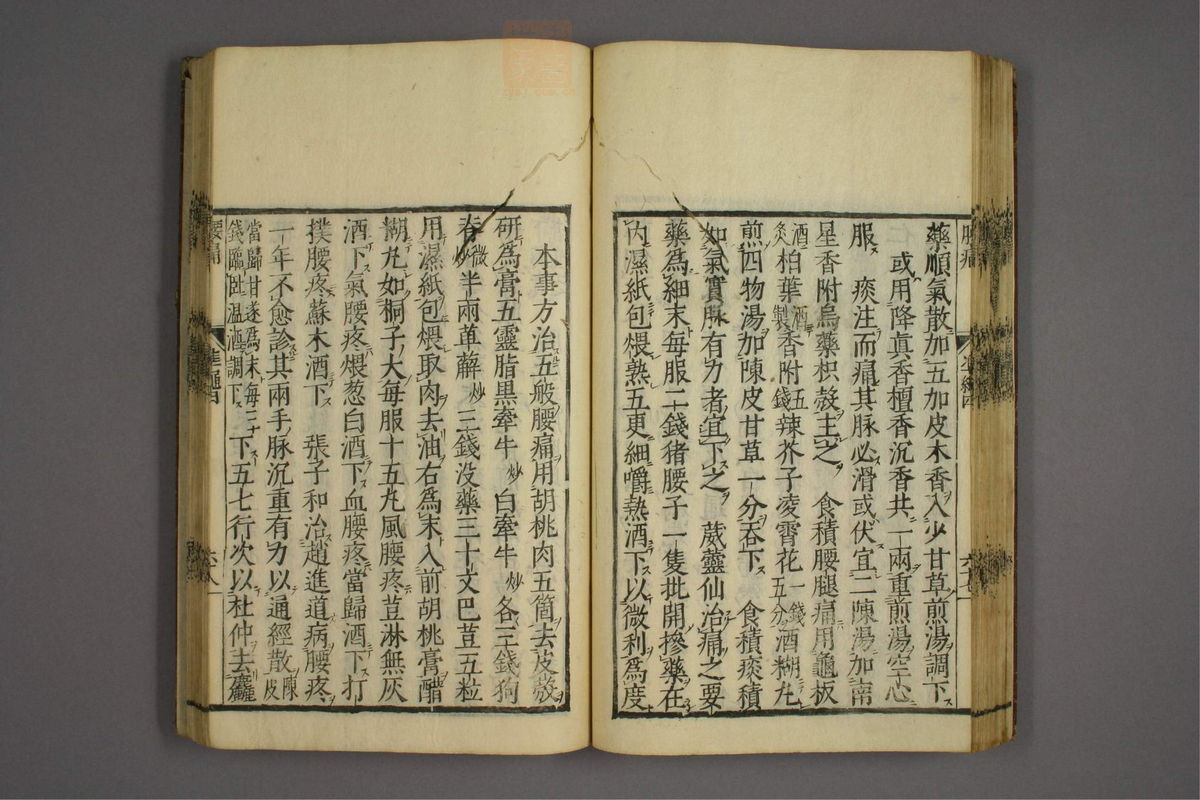 藥順氣散加五加皮木香入少甘草煎湯調下
或用降真香檀香沉香共一兩重煎湯空心
服 痰注而痛其脉必滑或伏宜二陳湯加南
星香附烏藥枳殼主之 食積腰腿痛用龜板
酒炙柏葉酒製香附五錢辣芥子凌霄花一錢五分酒糊丸
煎四物湯加陳皮甘草一分吞下 食積痰積
如氣實脉有力者宜下之 葳蘁仙治痛之要
藥為細末每服二錢猪腰子一隻批開摻藥在
內濕紙包煨熟五更細嚼熱酒下以微利為度
本事方治五般腰痛用胡桃肉五箇去皮殼
研為膏五靈脂黒牽牛炒白牽牛炒各三錢狗
脊微炒半兩萆薢炒三錢没藥三十文巴荳五粒
用濕紙包煨取肉去油右為末入前胡桃膏醋
糊丸如桐子大每服十五丸風腰疼荳淋無灰
酒下氣腰疼煨葱白酒下血腰疼當歸酒下打
撲腰疼蘇木酒下 張子和治趙進道病腰疼
一年不愈診其兩手脉沉重有力以通經散陳皮
當歸甘遂為末每三錢臨臥温酒調下 下五七行次以杜仲去麤
腰痛
準繩四
六八